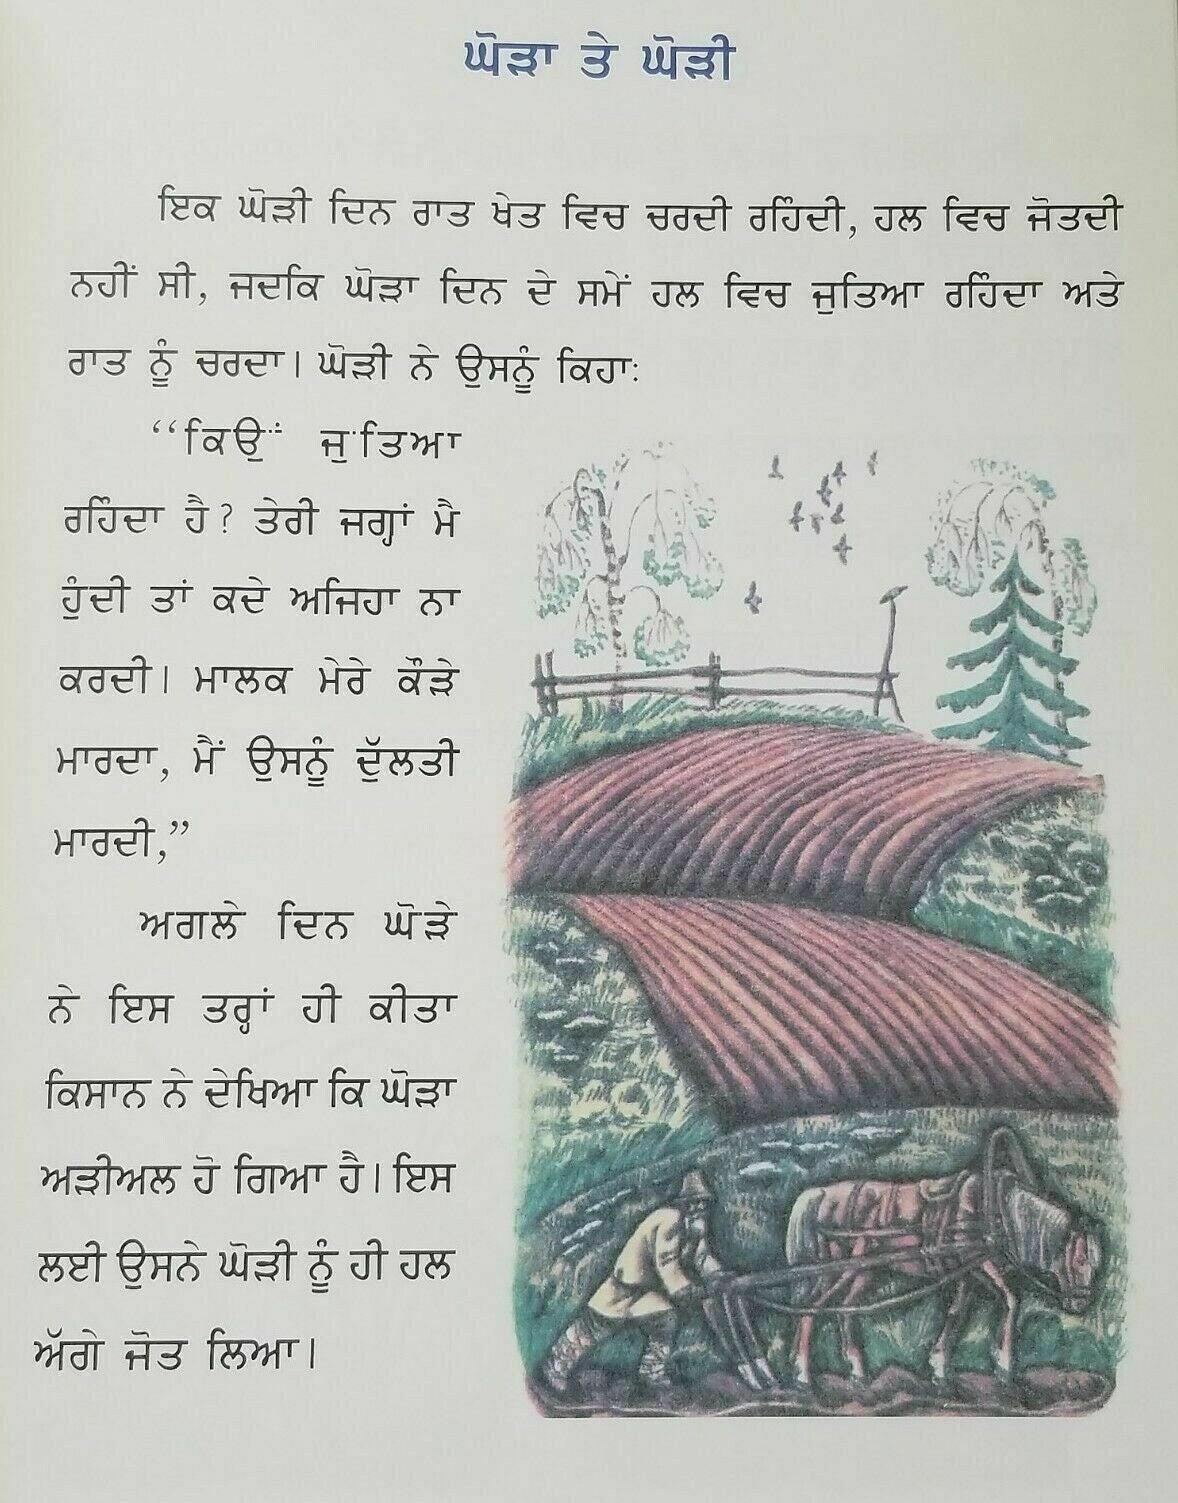 ਘੋੜਾ ਤੇ ਘੋੜੀ
ਇਕ ਘੋੜੀ ਦਿਨ ਰਾਤ ਖੇਤ ਵਿਚ ਚਰਦੀ ਰਹਿੰਦੀ, ਹਲ ਵਿਚ ਜੋਤਦੀ
ਨਹੀਂ ਸੀ, ਜਦਕਿ ਘੋੜਾ ਦਿਨ ਦੇ ਸਮੇਂ ਹਲ ਵਿਚ ਜੁਤਿਆ ਰਹਿੰਦਾ ਅਤੇ
ਰਾਤ ਨੂੰ ਚਰਦਾ। ਘੋੜੀ ਨੇ ਉਸਨੂੰ ਕਿਹਾ:
“ਕਿਉਂ ਜੁਤਿਆ
ਰਹਿੰਦਾ ਹੈ? ਤੇਰੀ ਜਗ੍ਹਾਂ ਮੈ
ਹੁੰਦੀ ਤਾਂ ਕਦੇ ਅਜਿਹਾ ਨਾ
ਕਰਦੀ। ਮਾਲਕ ਮੇਰੇ ਕੌੜੇ
ਮਾਰਦਾ, ਮੈਂ ਉਸਨੂੰ ਦੁੱਲਤੀ
ਮਾਰਦੀ,”
ਅਗਲੇ ਦਿਨ ਘੋੜੇ
ਨੇ ਇਸ ਤਰ੍ਹਾਂ ਹੀ ਕੀਤਾ
ਕਿਸਾਨ ਨੇ ਦੇਖਿਆ ਕਿ ਘੋੜਾ
ਅੜੀਅਲ ਹੋ ਗਿਆ ਹੈ। ਇਸ
ਲਈ ਉਸਨੇ ਘੋੜੀ ਨੂੰ ਹੀ ਹਲ
ਅੱਗੇ ਜੋਤ ਲਿਆ।